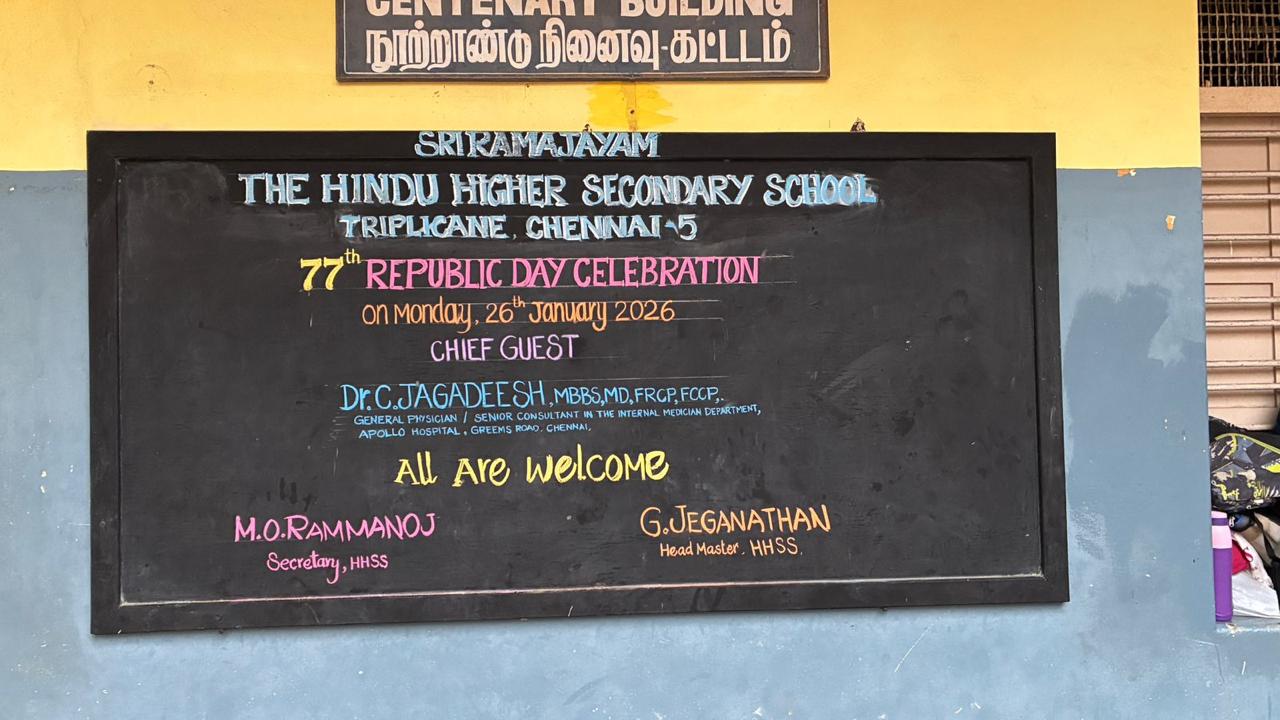 CENTENARY BUILDING
நூற்றாண்டு நினைவு-கட்டடம்
SRI RAMAJAYAM
THE HINDU HIGHER SECONDARY SCHOOL
TRIPLICANE, CHENNAI-5
77th REPUBLIC DAY CELEBRATION
on Monday, 26th January 2026
CHIEF GUEST
Dr. C. JAGADEESH, MBBS, MD, FRCP, FCCP,.
GENERAL PHYSICIAN / SENIOR CONSULTANT IN THE INTERNAL MEDICIAN DEPARTMENT,
APOLLO HOSPITAL, GREEMS ROAD, CHENNAI,
All Are Welcome
M.O. RAMMANOJ
Secretary, HHSS
G. JEGANATHAN
Head Master, HHSS.